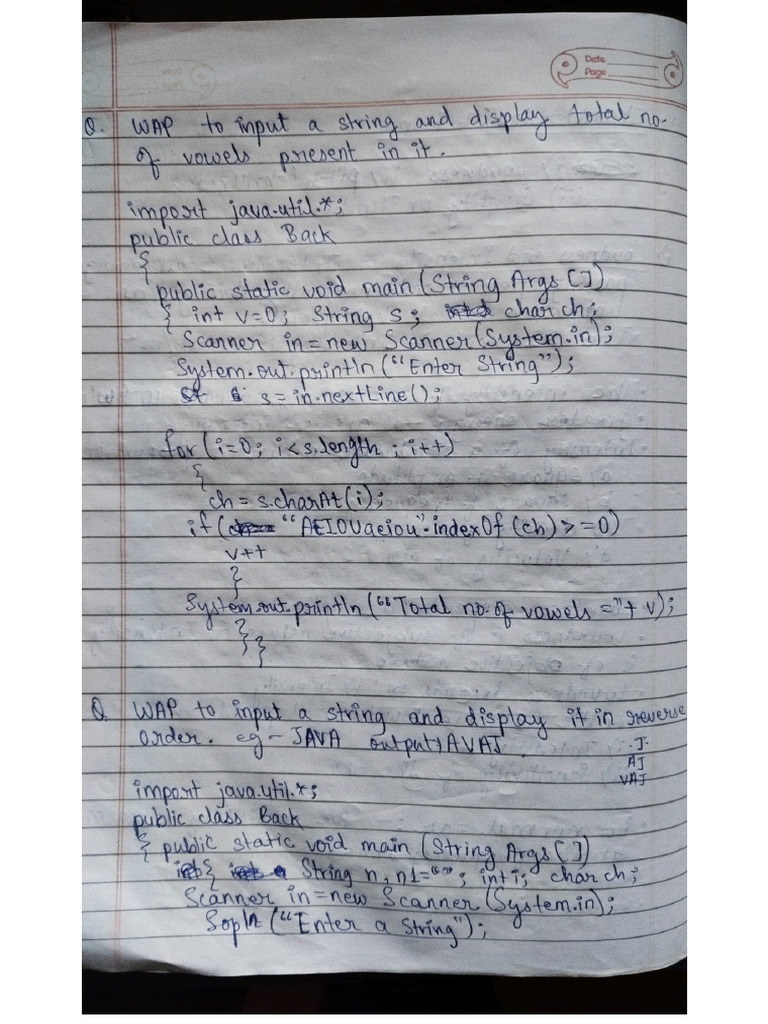 Date
Page
Q. WAP to input a string and display total no.
of vowels present in it.
import java.util.*;
public class Back
{
public static void main (String Args [])
{ int v=0; String s; char ch;
Scanner in = new Scanner (System.in);
System.out.println ("Enter String");
s = in.nextLine();
for (i=0; i<s.length ; i++)
{
ch = s.charAt(i);
if ("AEIOUaeiou".indexOf (ch) >=0)
v++
}
System.out.println ("Total no. of vowels ="+ v);
} }
Q WAP to input a string and display it in reverse
order. eg - JAVA output→AVAJ
.J.
AJ
VAJ
import java.util.*;
public class Back
{ public static void main (String Args [])
{ String n, n1=""; int i; char ch;
Scanner in = new Scanner (System.in);
Sopln ("Enter a String");